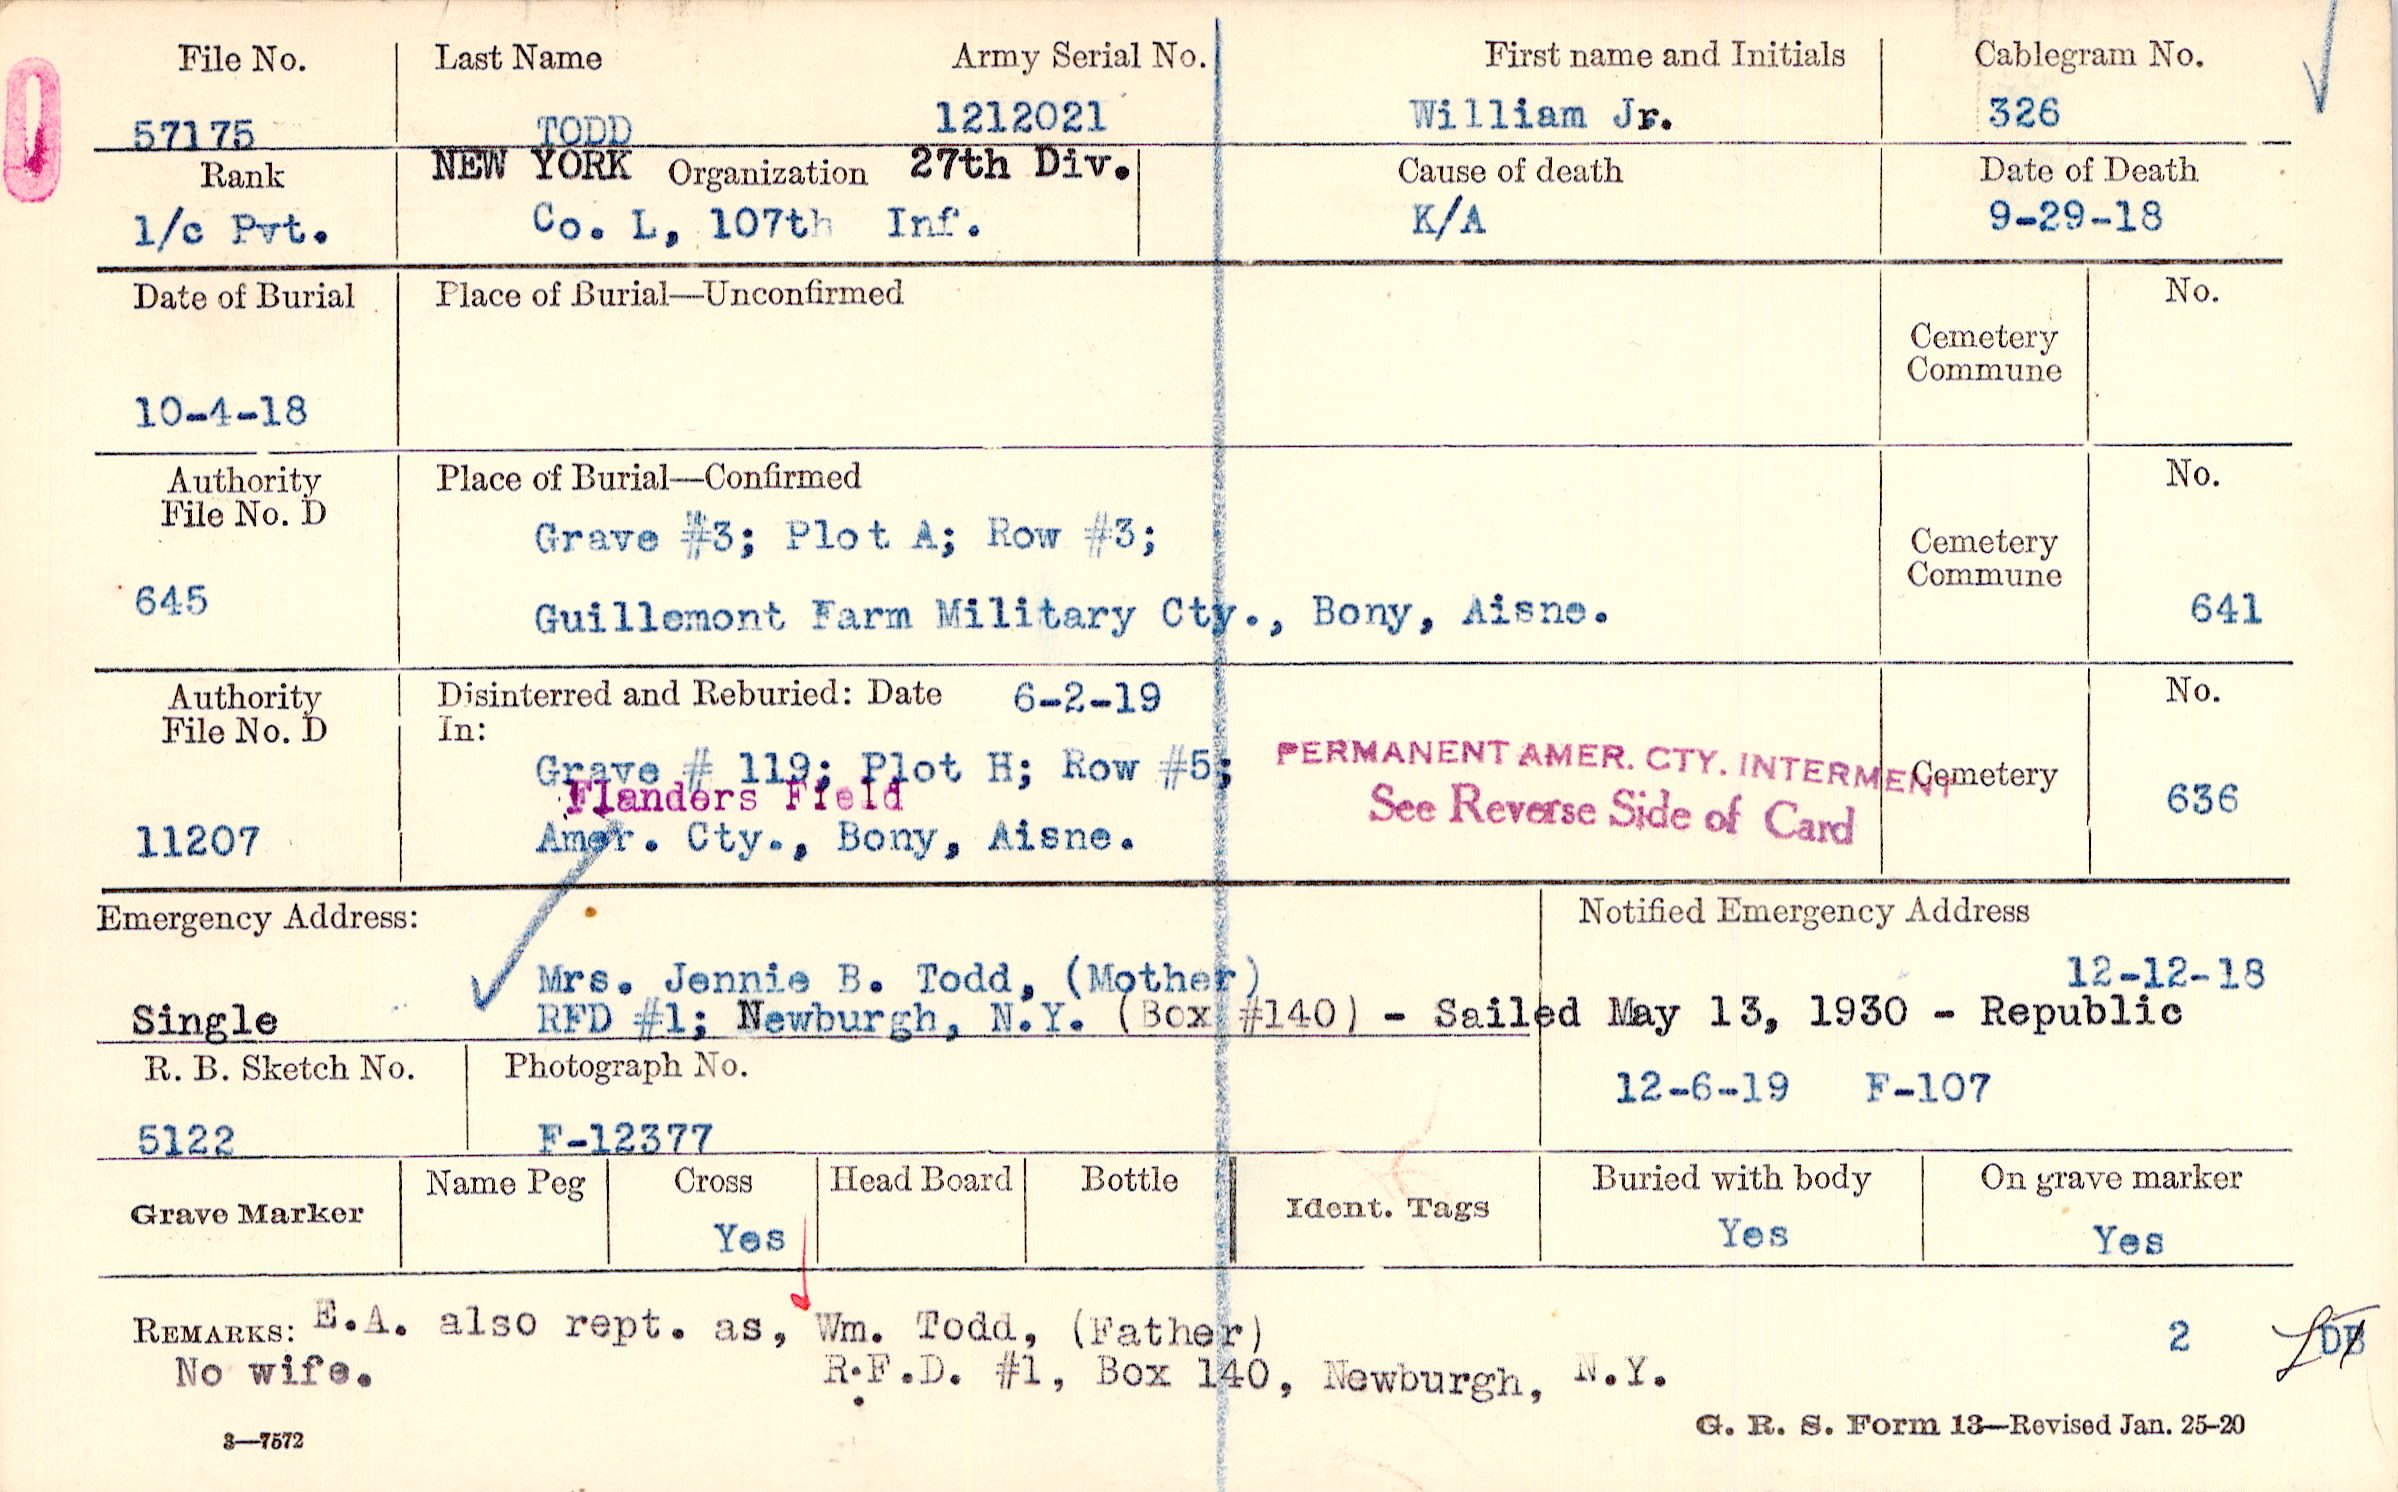 File No. Last Name Army Serial No. First name and Initials Cablegram No.
57175 TODD 1212021 William Jr. 326
Rank NEW YORK Organization 27th Div. Cause of death Date of Death
1/c Pvt. Co. L, 107th Inf. K/A 9-29-18
Date of Burial Place of Burial—Unconfirmed No.
Cemetery
Commune
10-4-18
Authority Place of Burial—Confirmed No.
File No. D
Grave #3; Plot A; Row #3; Cemetery
Commune
645 Guillemont Farm Military Cty., Bony, Aisne. 641
Authority Disinterred and Reburied: Date 6-2-19 No.
File No. D In:
Grave # 119; Plot H; Row #5; PERMANENT AMER. CTY. INTERMENT Cemetery
Flanders Field See Reverse Side of Card 636
11207 Amer. Cty., Bony, Aisne.
Emergency Address: Notified Emergency Address
Mrs. Jennie B. Todd, (Mother) 12-12-18
Single RFD #1; Newburgh, N.Y. (Box #140) - Sailed May 13, 1930 - Republic
R. B. Sketch No. Photograph No. 12-6-19 F-107
5122 F-12377
Grave Marker Name Peg Cross Head Board Bottle Ident. Tags Buried with body On grave marker
Yes Yes Yes
REMARKS: E.A. also rept. as, Wm. Todd, (Father) 2
No wife. R.F.D. #1, Box 140, Newburgh, N.Y.
3—7572 G. R. S. Form 13—Revised Jan. 25-20